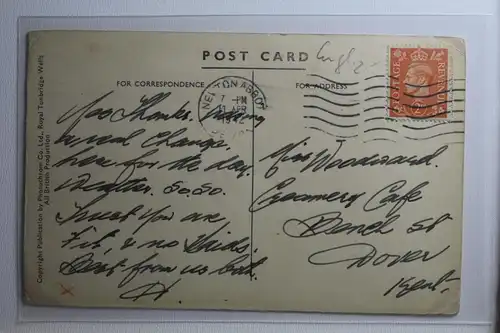 POST CARD
Engl 2
FOR CORRESPONDENCE
FOR ADDRESS
NEWTON ABBOT
7 - PM
APR
POSTAGE
REVENUE
Copyright Publication by Photochrom Co. Ltd., Royal Tunbridge Wells
All British Production
Yes Thanks. Having
a real change,
here for the day.
Weather So, So.
Trust you are
Fit, & no Skids.
Best from us both.
H.
Miss Woodward.
Creamery Cafe
Bench St
Dover
Kent.